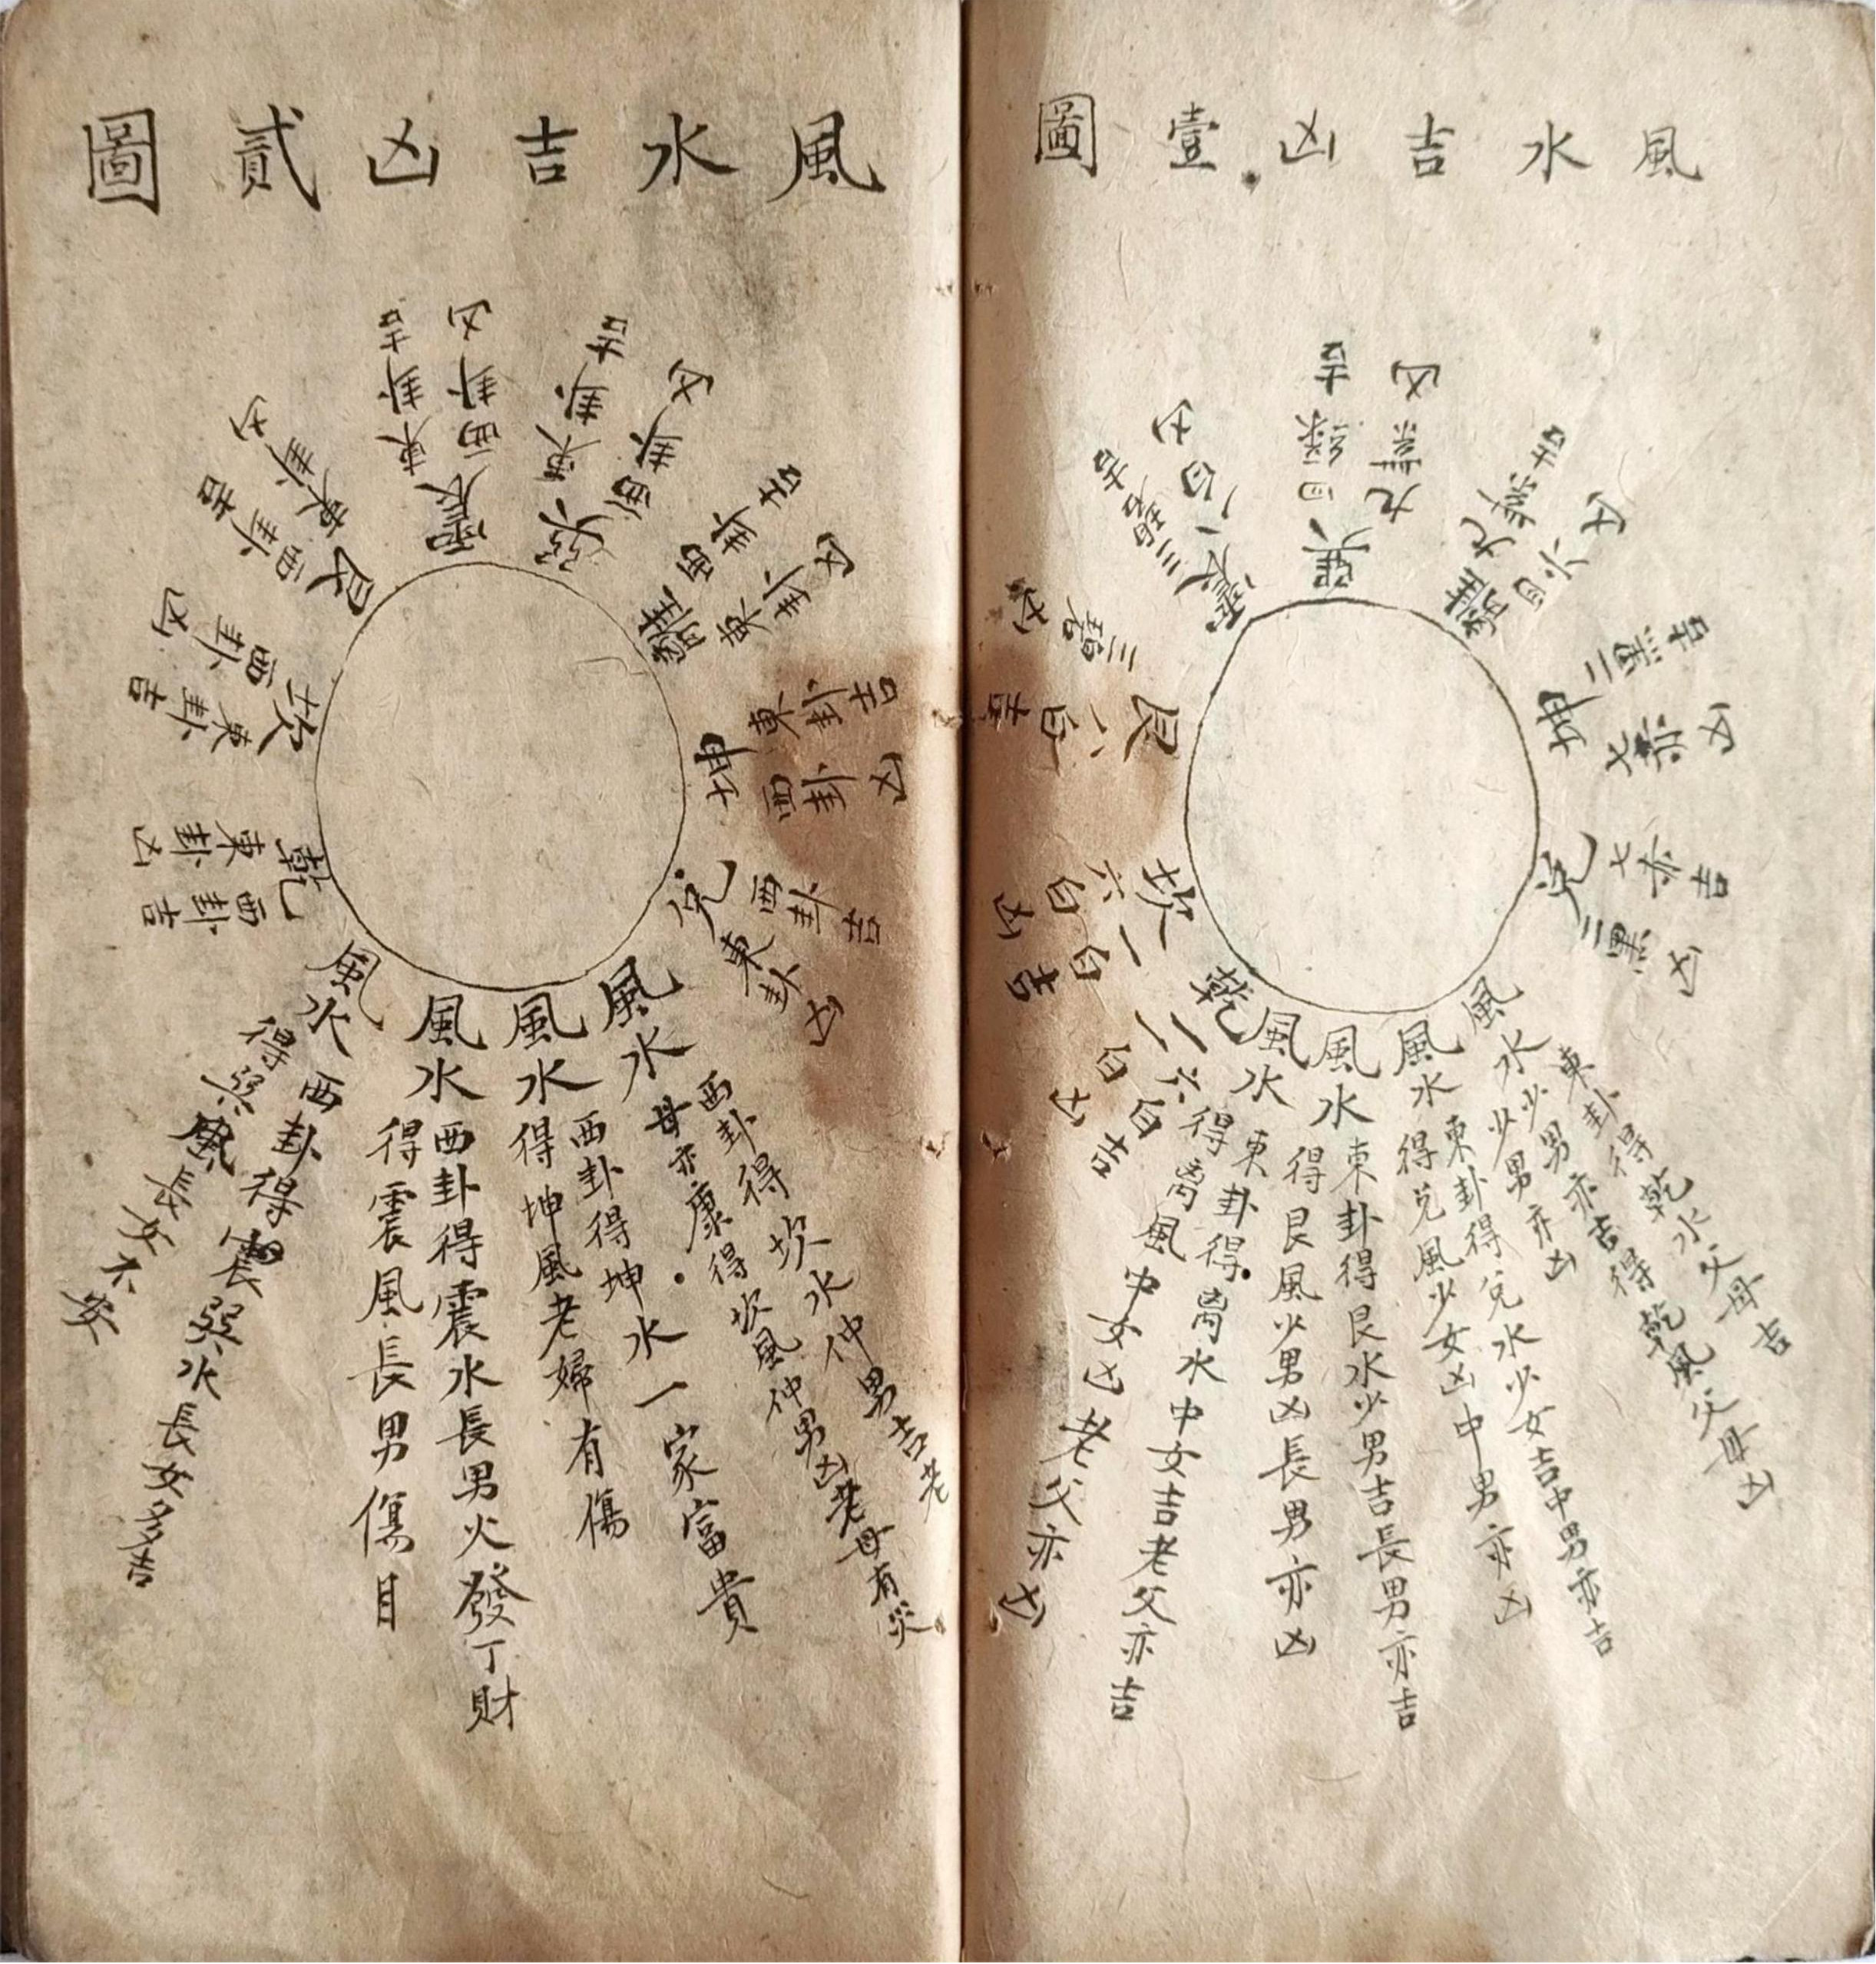 風水吉凶壹圖
乾
六白吉
一白凶
坎
一白吉
六白凶
艮
八白吉
三碧凶
震
三碧吉
八白凶
巽
四綠吉
九紫凶
離
九紫吉
四凶
坤
二黑吉
七赤凶
兌
七赤吉
二黑凶
風水
東卦得乾水父母吉
少男亦吉得乾風父母凶
少男亦凶
風水
東卦得兌水少女吉中男亦吉
得兌風少女凶中男亦凶
風水
東卦得艮水少男吉長男亦吉
得艮風少男凶長男亦凶
風水
東卦得离水中女吉老父亦吉
得离風中女凶老父亦凶
風水吉凶貳圖
乾
東卦凶
西卦吉
坎
西卦凶
東卦吉
艮
東卦凶
西卦吉
震
東卦吉
西卦凶
巽
東卦吉
西卦凶
離
西卦吉
東卦凶
坤
東卦吉
西卦凶
兌
西卦吉
東卦凶
風水
西卦得坎水仲男吉老
母亦康得坎風仲男凶老母有災
風水
西卦得坤水一家富貴
得坤風老婦有傷
風水
西卦得震水長男火發丁財
得震風長男傷目
風水
西卦得震巽水長女多吉
得巽風長女不安